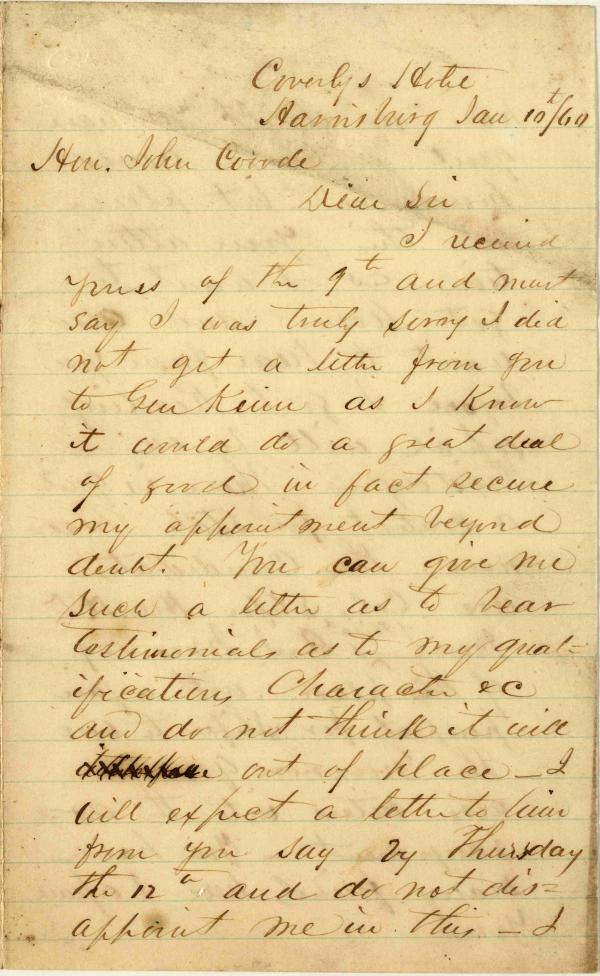 Coverlys Hote
Harrisburg Jan 10t/60
Hon. John Covode
Dear Sir
I received
yours of the 9th and must
say I was truly sorry I did
not get a letter from you
to Gen Keim as I know
it would do a great deal
of good in fact secure
my appointment beyond
doubt. You can give me
such a letter as to bear
testimonials as to my qual=
ifications, Character &c
and do not think it will
out of place – I
will expect a letter to him
from you say by Thursday
the 12th and do not dis=
appoint me in this – I